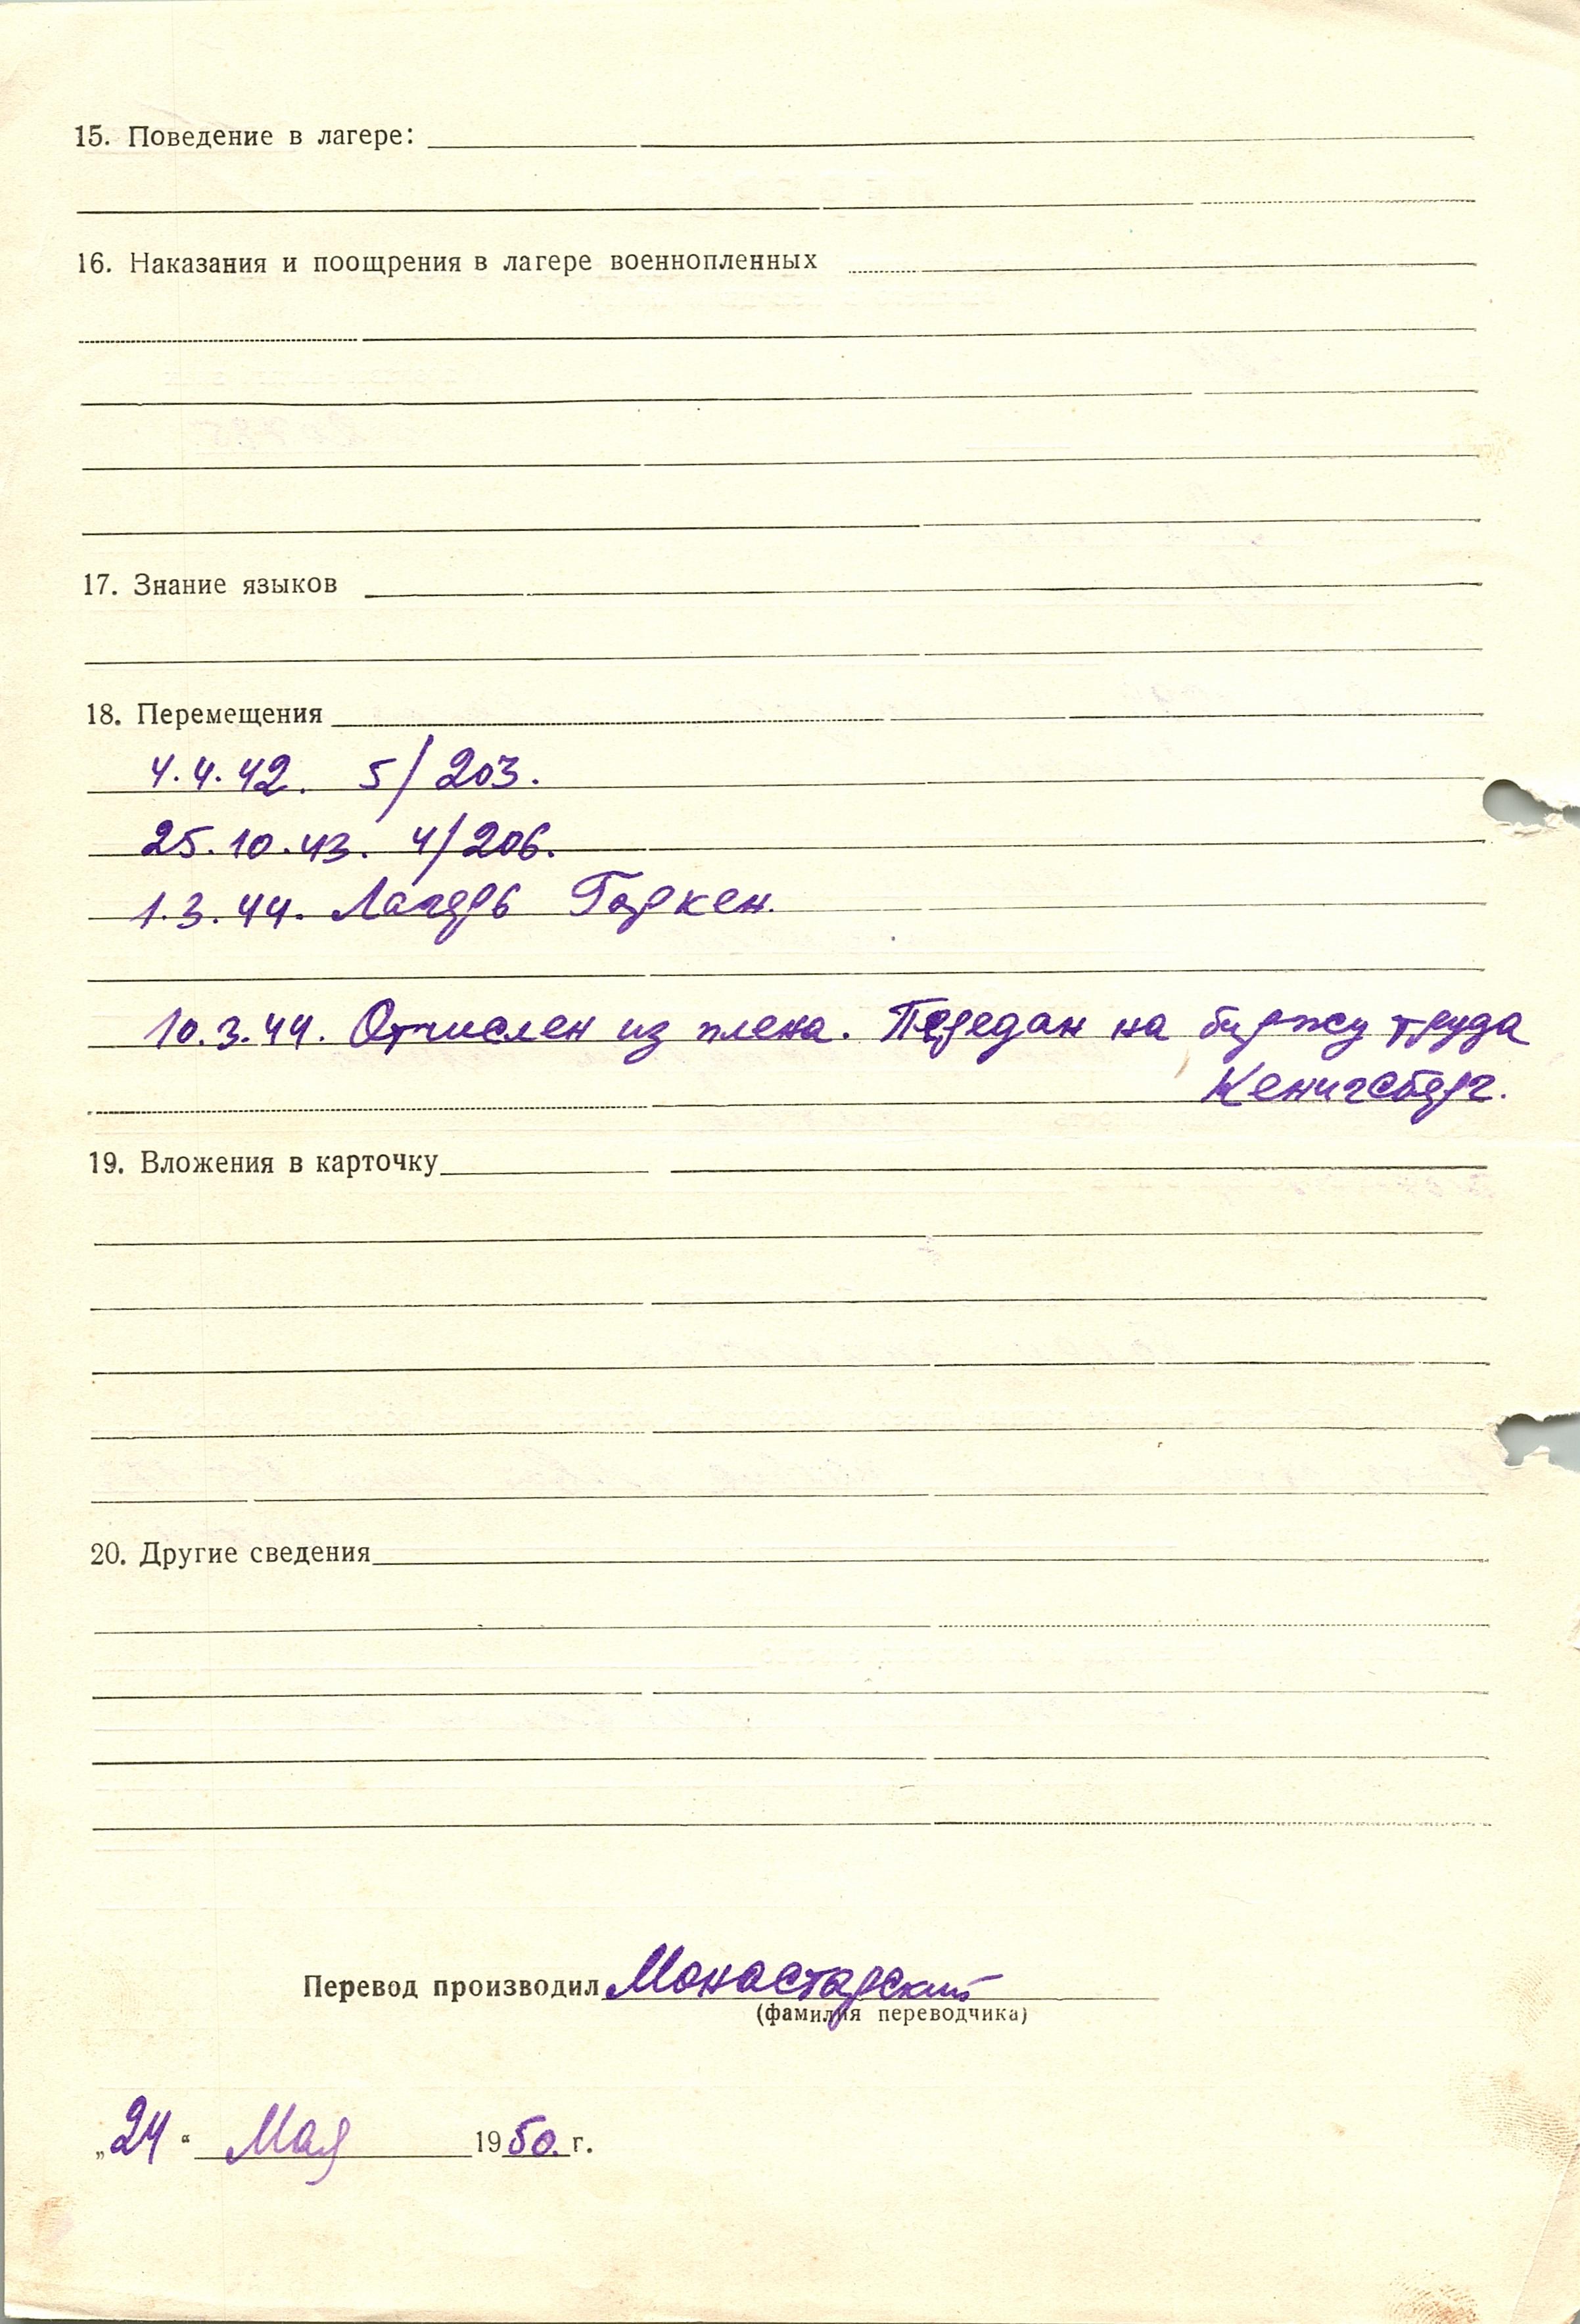 15. Поведение в лагере:
16. Наказания и поощрения в лагере военнопленных
17. Знание языков
18. Перемещения
4.4.42. 5/203.
25.10.43. 4/206.
1.3.44. Лагерь Горкен.
10.3.44. Отчислен из плена. Передан на биржу труда
Кенигсберг.
19. Вложения в карточку
20. Другие сведения
Перевод производил Монастарский
(фамилия переводчика)
„24“ Мая 1950. г.